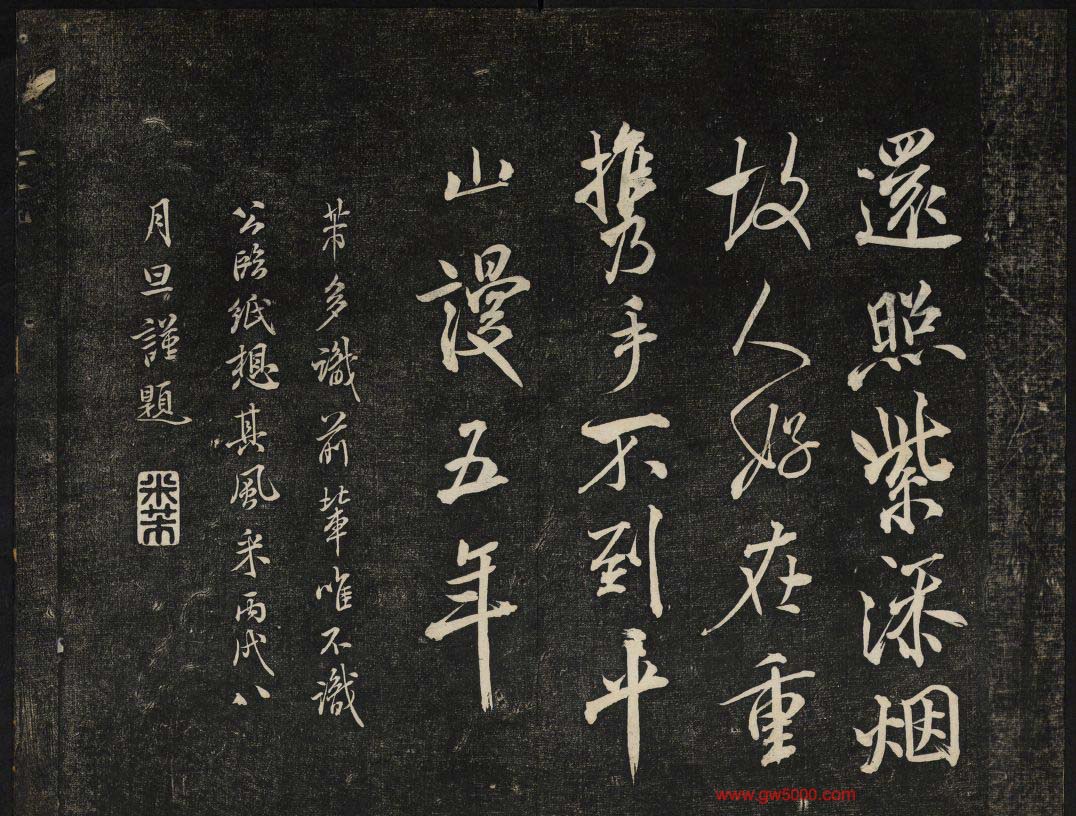 還照紫添烟
故人好在重
攜手不到平
山謾五年
芾多識前輩唯不識
公臨紙想其風采丙戌八
月旦謹題
米芾
www.gw5000.com